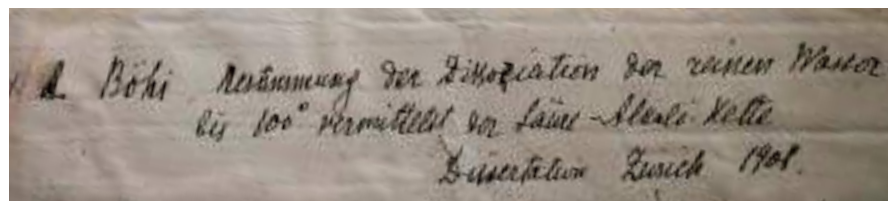 Böhi Bestimmung der Dissoziation des reinen Wasser
bis 100° vermittelst der Säure-Alkali-Kette
Dissertation Zürich 1908.